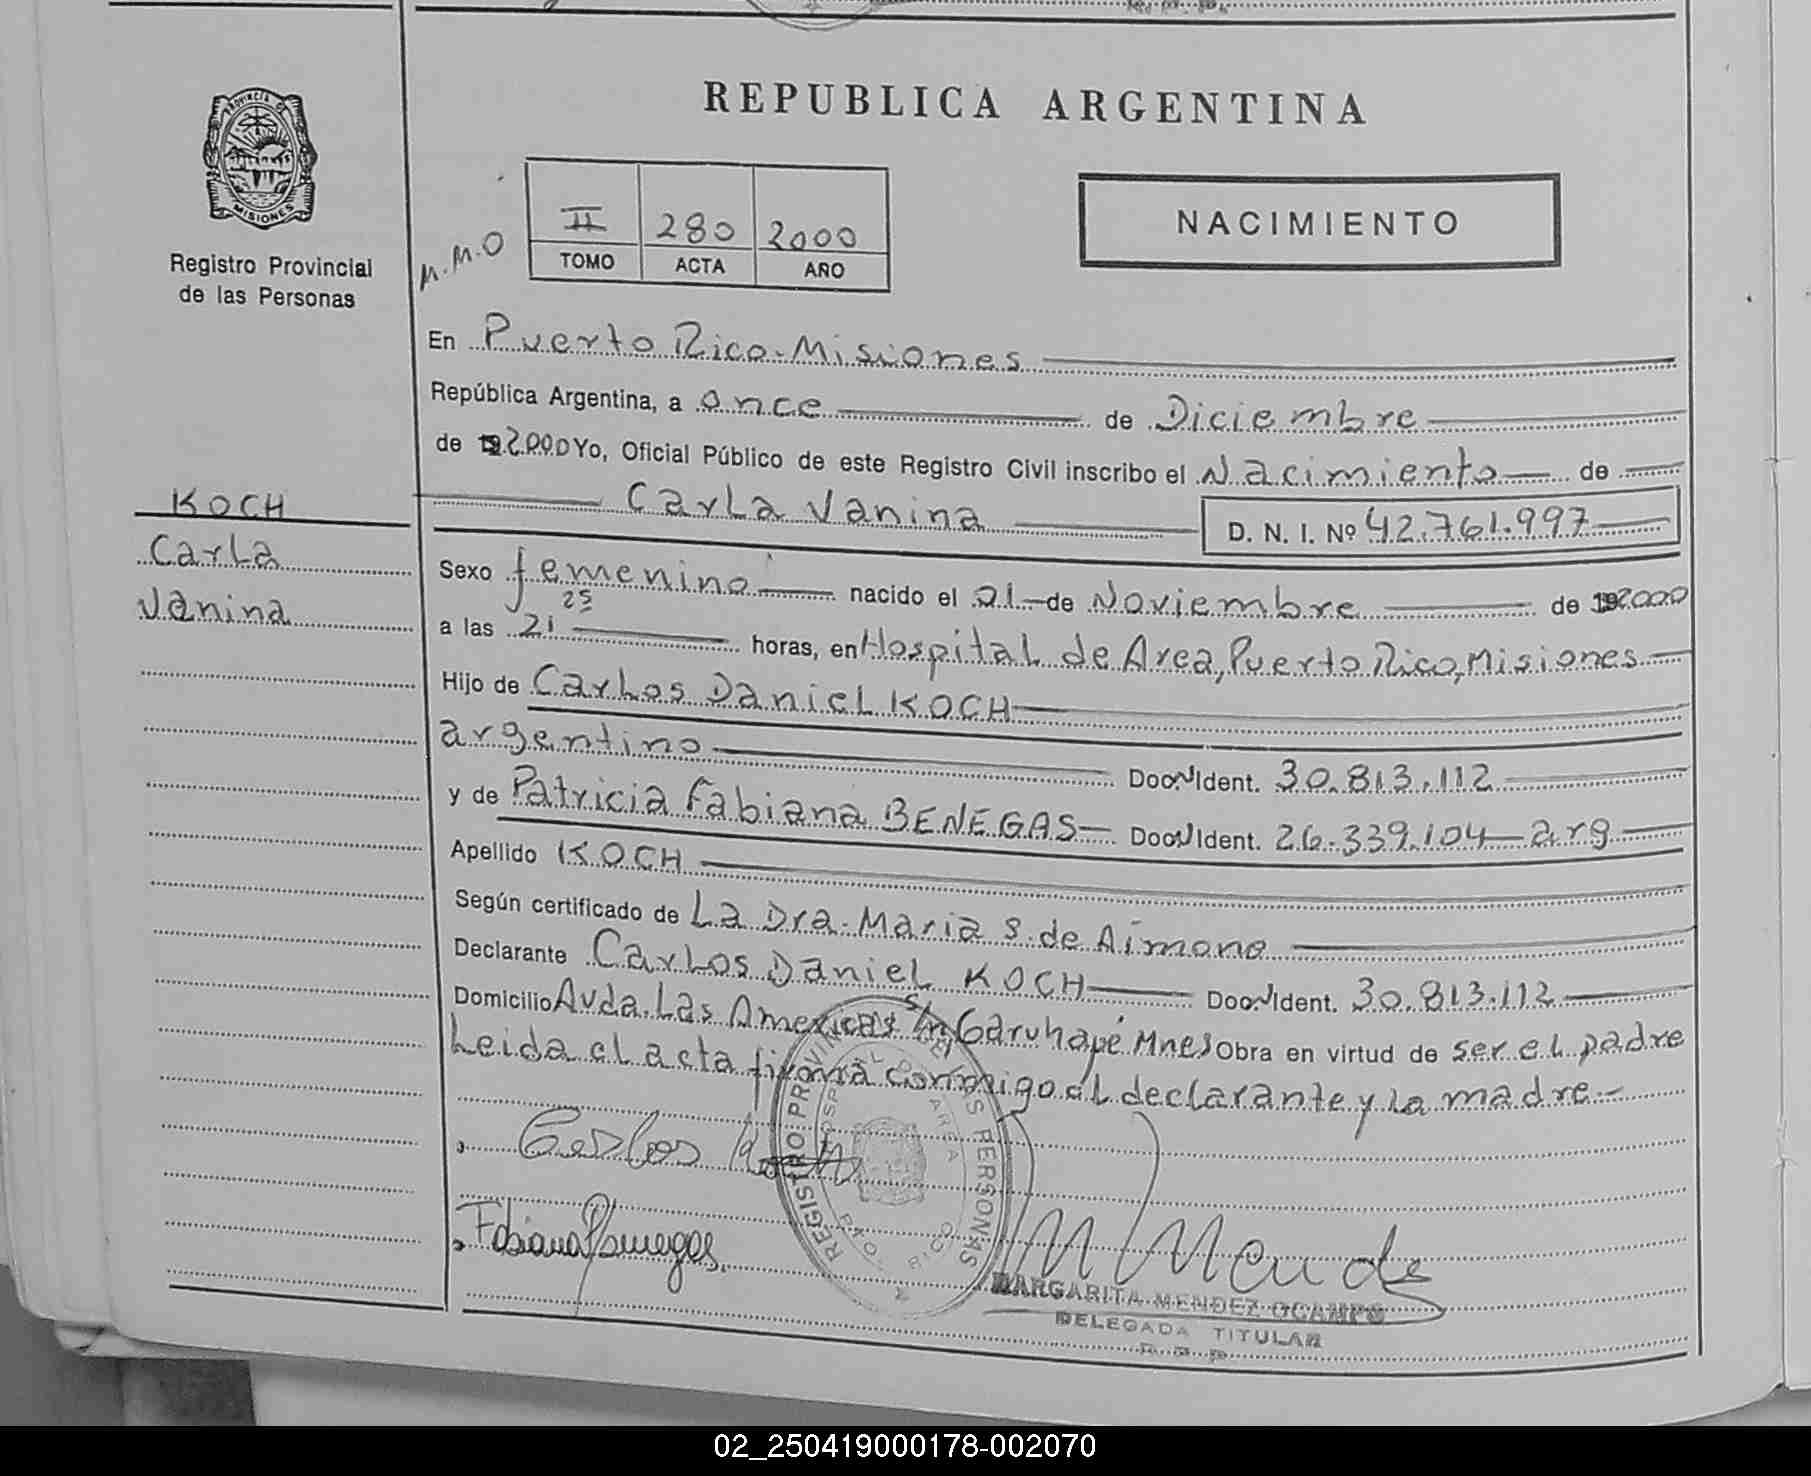 REPUBLICA ARGENTINA
PROVINCIA DE
MISIONES
Registro Provincial
de las Personas
M.M.O
II 280 2000
TOMO ACTA AÑO
NACIMIENTO
En Puerto Rico-Misiones
República Argentina, a once de Diciembre
de 2000 Yo, Oficial Público de este Registro Civil inscribo el Nacimiento de
Carla Vanina D. N. I. Nº 42.761.997
KOCH
Carla
Vanina
Sexo femenino nacido el 01 de Noviembre de 2000
a las 21 25 horas, en Hospital de Area, Puerto Rico, Misiones
Hijo de Carlos Daniel KOCH
argentino Doc. Ident. 30.813.112
y de Patricia Fabiana BENEGAS Doc. Ident. 26.339.104 arg
Apellido KOCH
Según certificado de La Dra. Maria S. de Aimone
Declarante Carlos Daniel KOCH Doc. Ident. 30.813.112
Domicilio Avda. Las Americas S/n Garuhapé Mnes Obra en virtud de ser el padre
Leida el acta firma conmigo el declarante y la madre.-
Carlos Koch
Fabiana Benegas.
REGISTRO PROVINCIAL DE LAS PERSONAS
HOSPITAL AREA
PTO. RICO
M Mendez
MARGARITA MENDEZ OCAMPO
DELEGADA TITULAR
R. P. P.
02_250419000178-002070